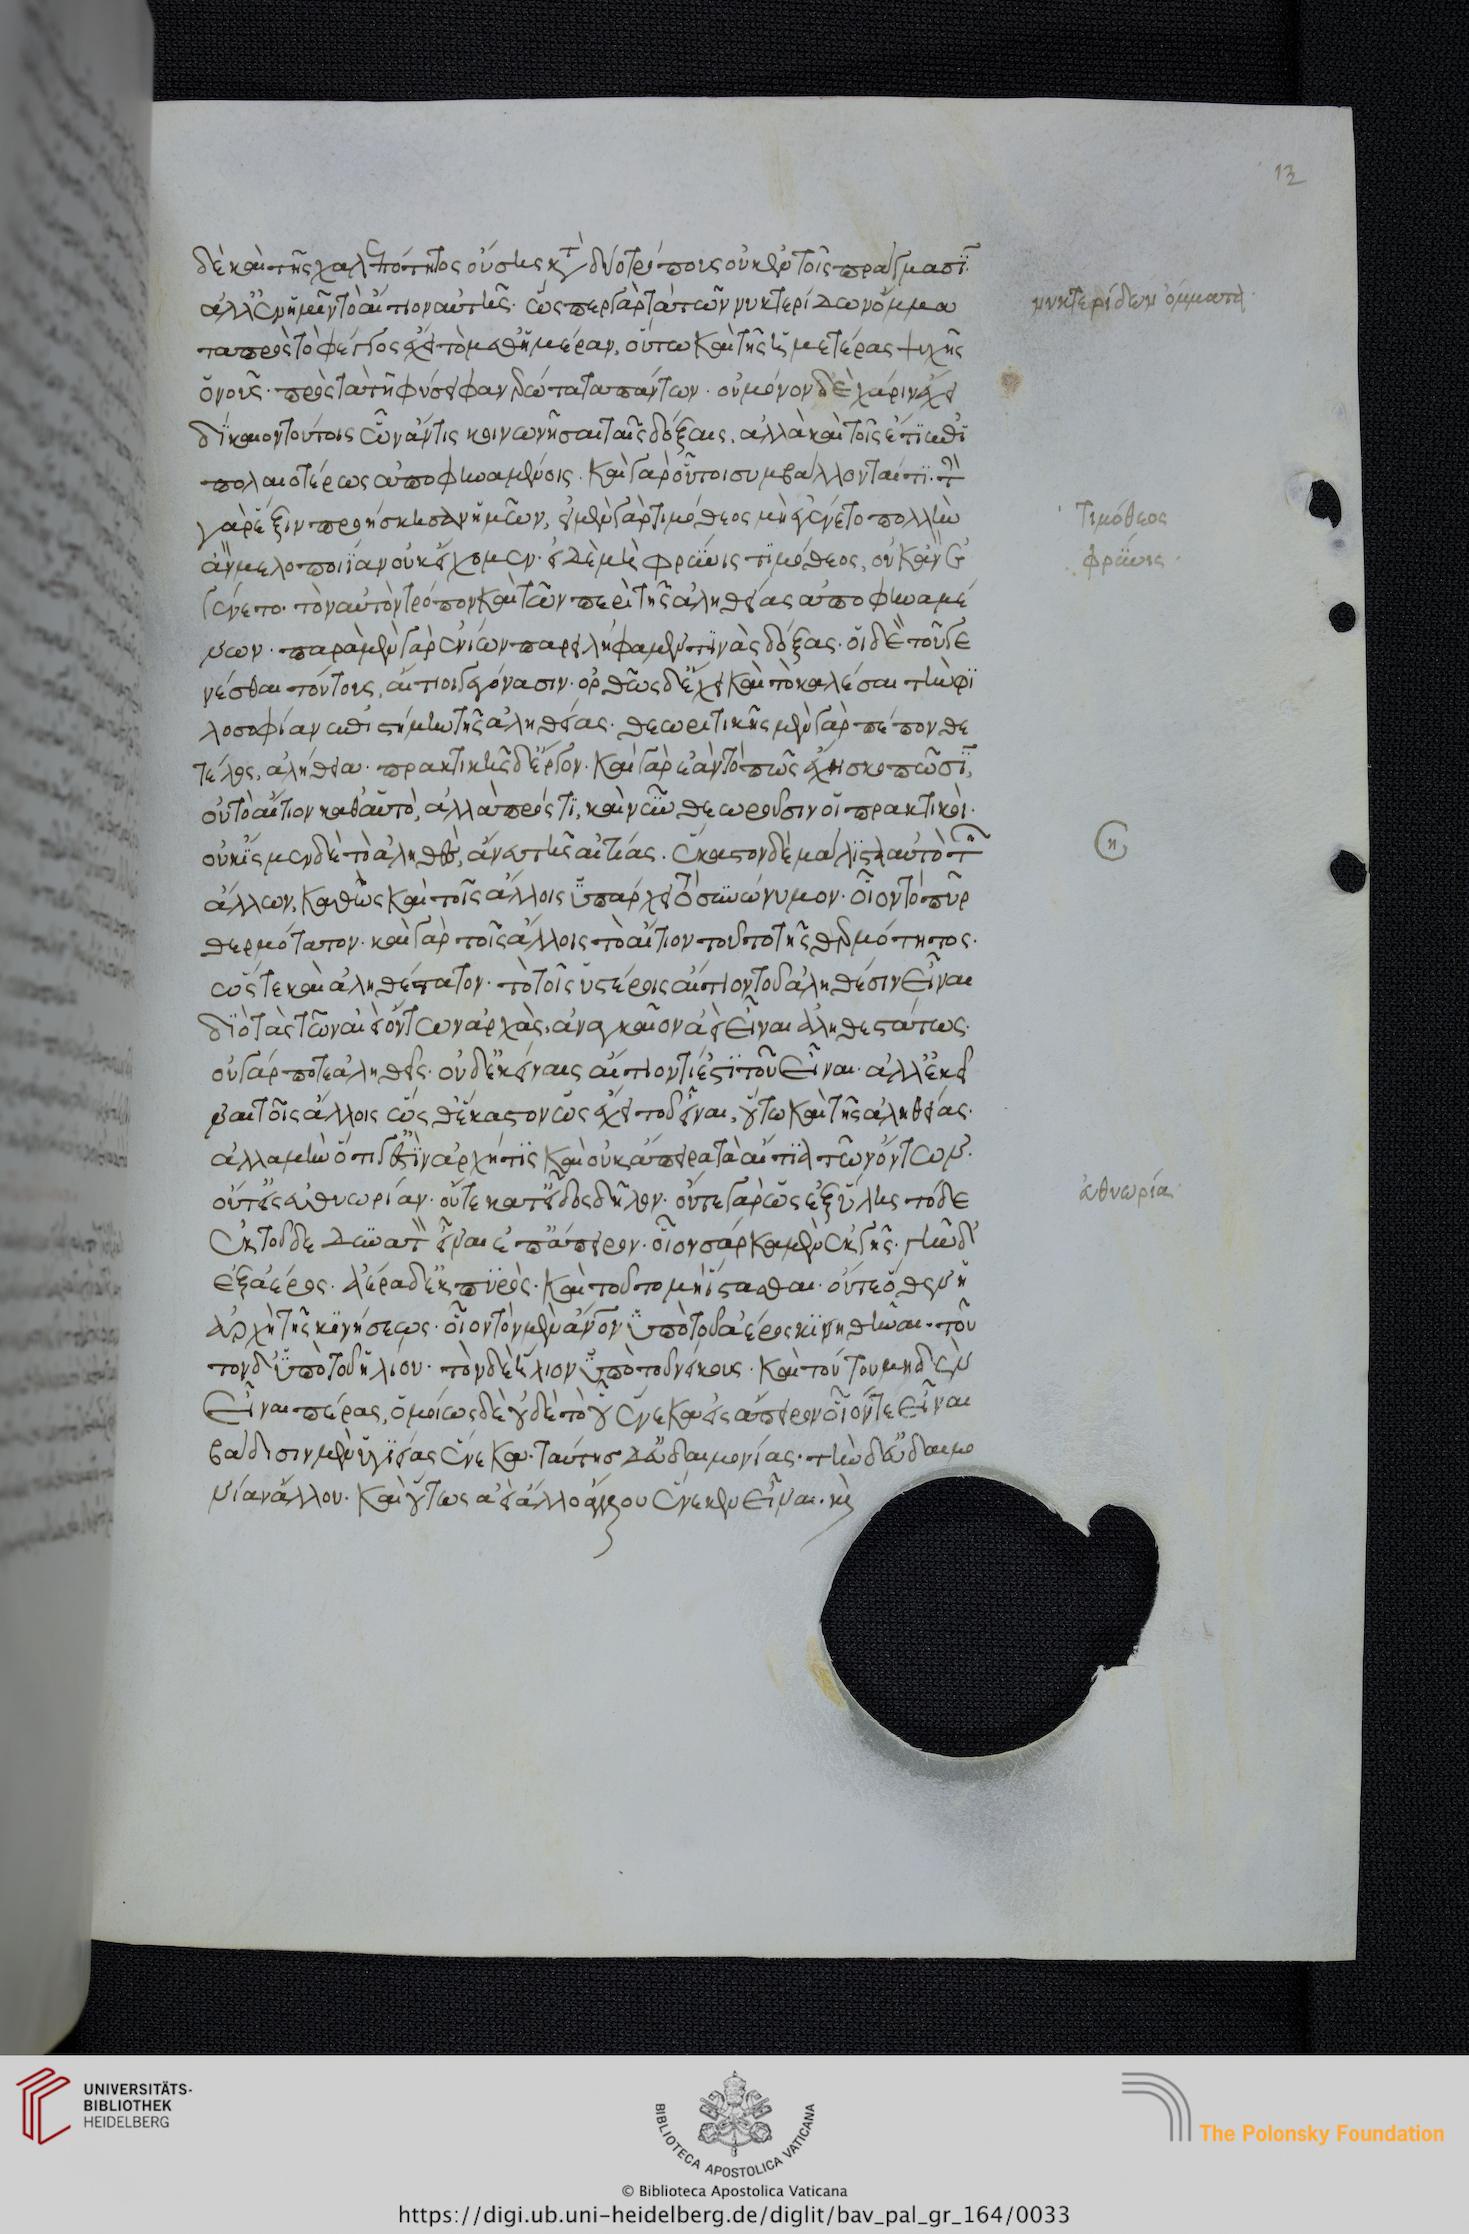 δὲ καὶ τῆς χαλεπότητος οὔσης κατὰ δύο τρόπους οὐκ ἐν τοῖς πράγμασϊν·
ἀλλ' ἐν ἡμῖν τὸ αἴτιον αὐτῆς· ὥσπερ γὰρ τὰ τῶν νυκτερίδων ὄμμα
νυκτερίδων ὄμματα·
τα πρὸς τὸ φέγγος ἔχει τὸ μεθ' ἡμέραν, οὕτω καὶ τῆς ἡμετέρας ψυχῆς
ὁ νοῦς· πρὸς τὰ τῆ φύσει φανερώτατα πάντων· οὐ μόνον δὲ χάριν ἔχει
δίκαιον τούτοις ὧν ἄν τις κοινωνῆσαι ταῖς δόξαις, ἀλλὰ καὶ τοῖς ἔτι ἐπι
πολαιοτέρως ἀποφηναμένοις· καὶ γὰρ οὗτοι συμβάλλονταί τι· τὴν
γὰρ ἕξιν προήσκησαν ἡμῶν, εἰ μὲν γὰρ τιμόθεος μὴ ἐγένετο πολλὴν
Τιμόθεος
ἂν μελοποιΐαν οὐκ εἴχομεν· εἰ δὲ μὴ φρύνις τιμόθεος, οὐκ ἂν ἐ
φρύνις·
γένετο· τὸν αὐτὸν τρόπον καὶ τῶν περὶ τῆς ἀληθείας ἀποφηναμέ
νων· παρὰ μὲν γὰρ ἐνίων παρειλήφαμέν τινας δόξας· οἱ δὲ τοῦ γε
νέσθαι τούτους, αἴτιοι γεγόνασιν· ὀρθῶς δ' ἔχει καὶ τὸ καλέσαι τὴν φι
λοσοφίαν ἐπιστήμην τῆς ἀληθείας· θεωρητικῆς μὲν γὰρ πέπονθε
τέλος, ἀλήθεια· πρακτικῆς δ' ἔργον· καὶ γὰρ ἐὰν τὸ πῶς ἔχει σκοπῶσϊν,
οὐ τὸ αἴτιον καθ' αὑτὸ, ἀλλὰ πρός τι, καὶ νῦν θεωροῦσιν οἱ πρακτικοὶ·
οὐκ ἴσμεν δὲ τὸ ἀληθὲς, ἄνευ τῆς αἰτίας· ἕκαστον δὲ μάλιστα αὐτὸ τῶν
ἄλλων, καθ' ὃ καὶ τοῖς ἄλλοις ὑπάρχει τὸ συνώνυμον· οἷον τὸ πῦρ
θερμότατον· καὶ γὰρ τοῖς ἄλλοις τὸ αἴτιον τοῦτο τῆς θερμότητος·
ὥστε καὶ ἀληθέστατον· τὸ τοῖς ὑστέροις αἴτιον τοῦ ἀληθέσιν εἶναι
διὸ τὰς τῶν ἀεὶ ὄντων ἀρχὰς, ἀναγκαῖον ἀεὶ εἶναι ἀληθεστάτας·
οὐ γάρ ποτε ἀληθεῖς· οὐδ' ἐκείναις αἴτιόν τι ἐστι τοῦ εἶναι· ἀλλ' ἐκεῖ
ναι τοῖς ἄλλοις ὥσθ' ἕκαστον ὡς ἔχει τοῦ εἶναι, οὕτω καὶ τῆς ἀληθείας·
ἀλλὰ μὴν ὅτι γ' ἔστιν ἀρχή τις καὶ οὐκ ἄπειρα τὰ αἴτια τῶν ὄντων·
οὔτ' εἰς εὐθυωρίαν· οὔτε κατ' εἶδος δῆλον· οὔτε γὰρ ὡς ἐξ ὕλης τόδε
εὐθυωρία·
ἐκ τοῦδε δυνατὸν εἶναι εἰς ἄπειρον· οἷον σάρκα μὲν ἐκ γῆς· γῆν δ'
ἐξ ἀέρος· ἀέρα δ' ἐκ πυρὸς· καὶ τοῦτο μὴ ἵστασθαι· οὔτε ὅθεν ἡ
ἀρχὴ τῆς κινήσεως· οἷον τὸν μὲν ἄνθρωπον ὑπὸ τοῦ ἀέρος κινηθῆναι· τοῦ
τον δ' ὑπὸ τοῦ ἡλίου· τὸν δὲ ἥλιον ὑπὸ τοῦ νείκους· καὶ τούτου μηδὲν
εἶναι πέρας, ὁμοίως δὲ οὐδὲ τὸ οὗ ἕνεκα εἰς ἄπειρον οἷόν τε εἶναι
βάδισιν μὲν ὑγιείας ἕνεκα· ταύτην δ' εὐδαιμονίας· τὴν δ' εὐδαιμο
νίαν ἄλλου· καὶ οὕτως ἀεὶ ἄλλο ἄλλου ἕνεκεν εἶναι· καὶ
UNIVERSITÄTS-
BIBLIOTHEK
HEIDELBERG
BIBLIOTECA APOSTOLICA VATICANA
© Biblioteca Apostolica Vaticana
The Polonsky Foundation
https://digi.ub.uni-heidelberg.de/diglit/bav_pal_gr_164/0033